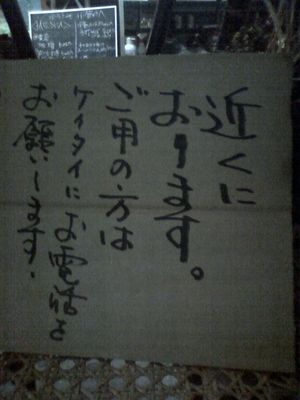 近くに
おります。
ご用の方は
ケイタイにお電話を
お願いします.